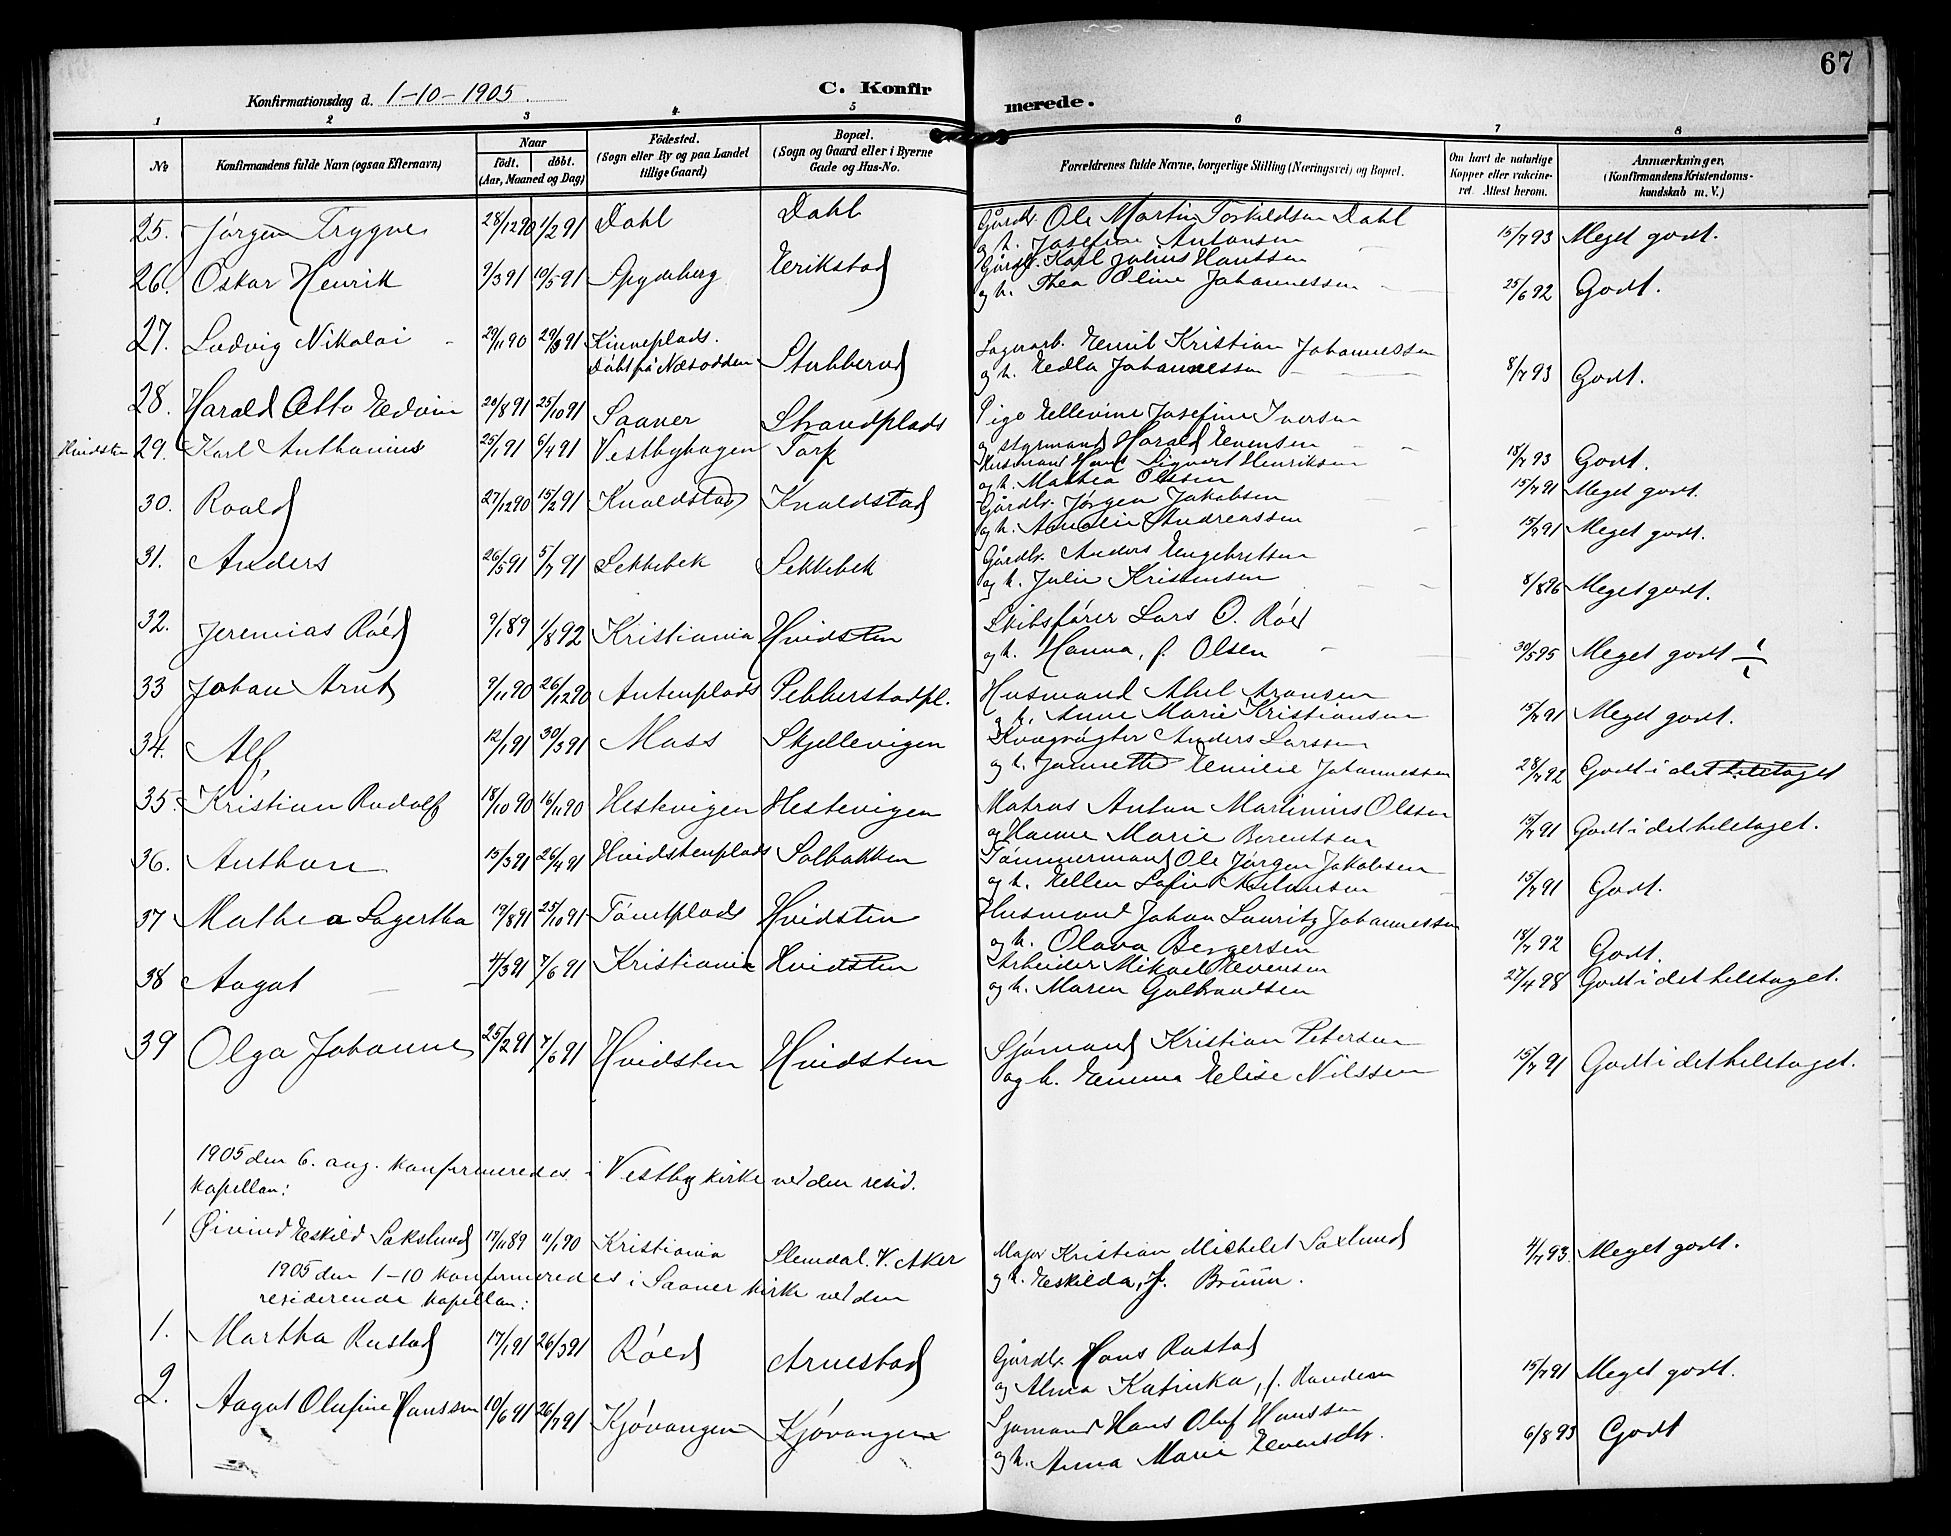 67
Konfirmationsdag d. 1-10-1905. C. Konfirmerede.
1 2 3 4 5 6 7 8
№ Konfirmandens fulde Navn (ogsaa Efternavn) Naar født. døbt. (Aar, Maaned og Dag) Födested. (Sogn eller By og paa Landet tillige Gaard) Bopæl. (Sogn og Gaard eller i Byerne Gade og Hus-No. Forældrenes fulde Navne, borgerlige Stilling (Næringsvei) og Bopæl. Om havt de naturlige Kopper eller vakcineret. Attest herom. Anmærkninger. (Konfirmandens Kristendomskundskab m. V.)
25. Jørgen Trygve 28/12 90 1/2 91 Dahl Dahl Gårdbr. Ole Martin Torkildsen Dahl
og h. Josefine Antonsen 15/7 93 Meget godt.
26. Oskar Henrik 9/3 91 10/5 91 Spydeberg Erikstad Gårdbr. Karl Julius Hanssen
og h. Thea Oline Johannessen 25/6 92 Godt.
27. Ludvig Nikolai 29/11 90 29/3 91 Kinneplads. Døbt på Næsodden Stubberud Sagarb. Emil Kristian Johannessen
og h. Edla Johannessen 8/7 93 Godt.
28. Harald Otto Edvin 20/8 91 25/10 91 Saaner Strandplads Pige Ellevine Josefine Iversen
og styrmand Harald Evensen 15/7 93 Godt.
Hvidsten 29. Karl Anthanius 25/1 91 6/4 91 Vestbyhagen Torp Husmand Hans Sigvart Henriksen
og h. Mathea Olssen 15/7 91 Meget godt.
30. Roald 27/12 90 15/2 91 Knaldstad Knaldstad Gårdbr. Jørgen Jakobsen
og h. Amalie Andreassen 15/7 91 Meget godt.
31. Anders 26/5 91 5/7 91 Sekkebek Sekkebek Gårdbr. Anders Engebretsen
og h. Julie Kristensen 8/8 96 Meget godt.
32. Jeremias Röed 9/1 89 1/8 92 Kristiania Hvidsten Skibsfører Lars O. Röed
og h. Hanna, f. Olsen 30/5 95 Meget godt
33 Johan Arnt 9/11 90 26/12 90 Antenplads Pebberstadpl. Husmand Abel Aronsen
og h. Anne Marie Kristiansen 15/7 91 Meget godt.
34. Alf, 12/1 91 30/3 91 Moss Skjellevigen Kvægrögter Anders Larssen
og h. Jannette Emilie Johannessen 28/7 92 Godt i det heletaget
35. Kristian Rudolf 18/10 90 16/11 90 Hestevigen Hestevigen Matros Anton Martinius Olssen
og Hanne Marie Berentsen 15/7 91 Godt i det heletaget.
36. Anthon 15/3 91 26/4 91 Hvidstenplads Solbakken Tömmermand Ole Jørgen Jakobsen
og h. Ellen Sofie 15/7 91 Godt.
37 Mathea Lagertha 19/8 91 25/10 91 Hvidsten Husmand Johan Lauritz Johannessen
og h. Olava Bergersen 18/7 92 Godt.
38 Aagot 4/3 91 7/6 91 Kristiania Hvidsten Arbeider Mikael Evensen
og h. Maren Gulbrandsen 27/4 98 Godt i det heletaget.
39 Olga Johanne 25/2 91 7/6 91 Hvidsten Hvidsten Sjømand Kristian Petersen
og h. Emma Elise Nilssen 15/7 91 Godt i det heletaget.
1905 den 6. aug. konfirmeredes i Vestby kirke ved den resid.
kapellan:
1 Øivind Eskild Sakslund 17/11 89 11/1 90 Kristiania Slemdal. V. Aker Major Kristian Michelet Saxlund
og h. Eskilda, f. Brüün. 4/7 93. Meget godt.
1905 den 1-10 konfirmeredes i Saaner kirke ved den
residerende kapellan:
1. Martha Rustad 17/1 91 26/3 91 Röed Arnestad Gårdbr. Hans Rustad
og Alma Katinka, f. 15/7 91 Meget godt.
2. Aagot Olufine Hanssen 10/6 91 26/7 91 Kjövangen Kjövangen Sjømand Hans Oluf Hanssen
og h. Anna Marie Evensdtr. 6/8 93 Godt